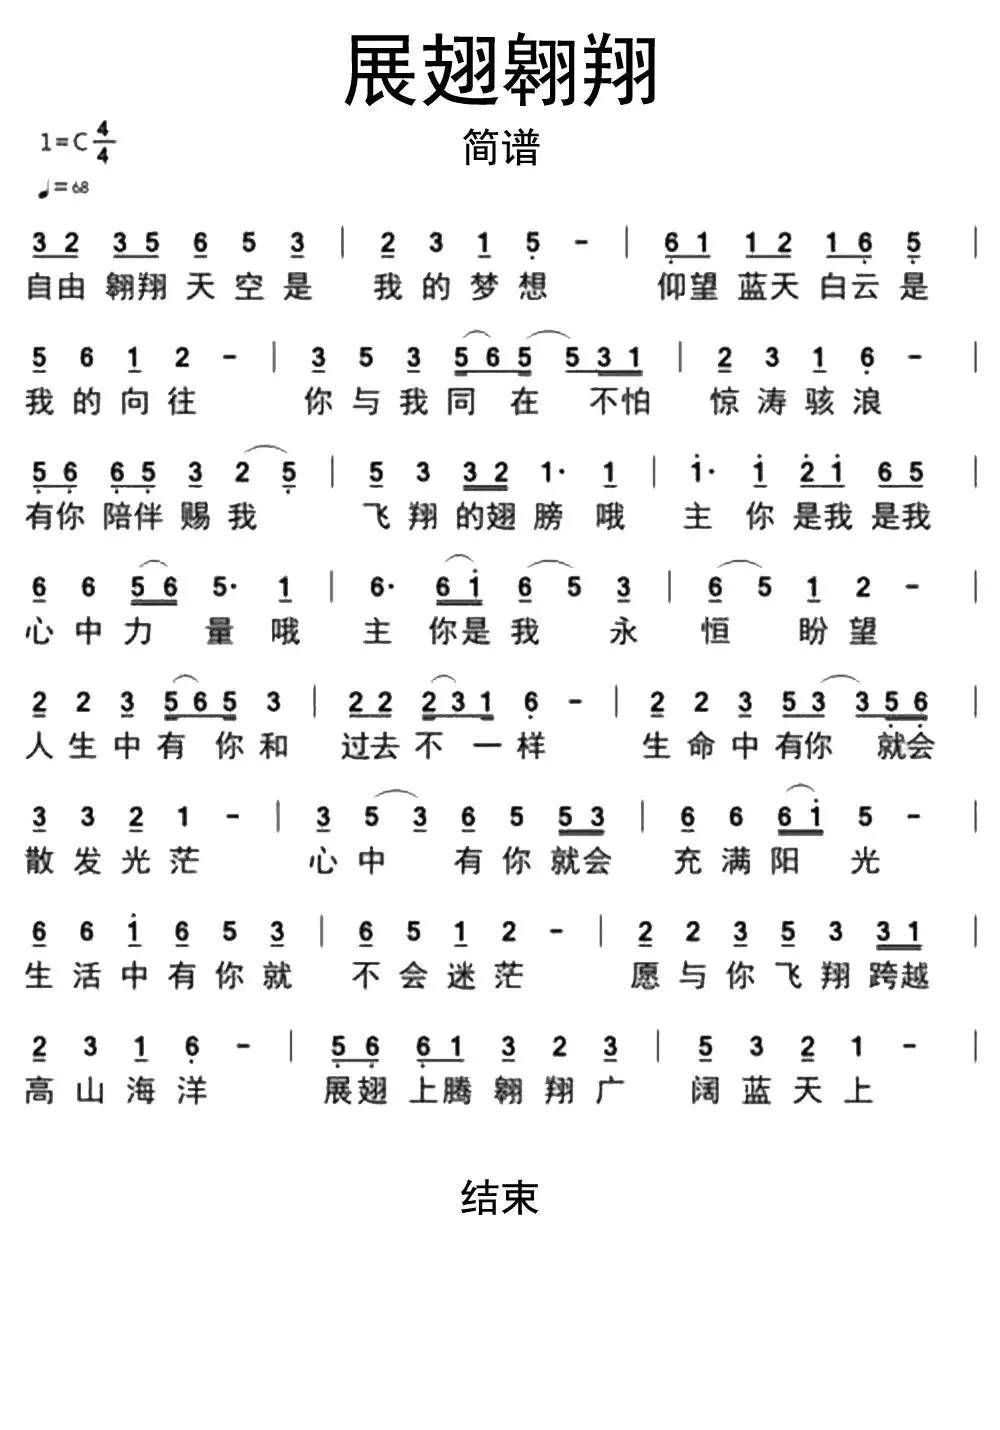 展翅翱翔
简谱
1=C 4/4
♩=68
3 2 3 5 6 5 3 | 2 3 1 5 - | 6 1 1 2 1 6 5 |
自由 翱翔 天 空 是 我 的 梦 想 仰望 蓝天 白云 是
5 6 1 2 - | 3 5 3 5 6 5 5 3 1 | 2 3 1 6 - |
我 的 向 往 你 与 我 同 在 不怕 惊 涛 骇 浪
5 6 6 5 3 2 5 | 5 3 3 2 1· 1 | 1· 1 2 1 6 5 |
有你 陪伴 赐 我 飞 翔 的翅 膀 哦 主 你 是我 是我
6 6 5 6 5· 1 | 6· 6 1 6 5 3 | 6 5 1 2 - |
心 中 力 量 哦 主 你是 我 永 恒 盼 望
2 2 3 5 6 5 3 | 2 2 2 3 1 6 - | 2 2 3 5 3 3 5 6 |
人 生 中 有 你 和 过去 不 一 样 生 命 中 有你 就会
3 3 2 1 - | 3 5 3 6 5 5 3 | 6 6 6 1 5 - |
散 发 光 茫 心 中 有 你 就会 充 满 阳 光
6 6 1 6 5 3 | 6 5 1 2 - | 2 2 3 5 3 3 1 |
生 活 中 有 你 就 不 会 迷 茫 愿 与 你 飞 翔 跨越
2 3 1 6 - | 5 6 6 1 3 2 3 | 5 3 2 1 - |
高 山 海 洋 展翅 上腾 翱 翔 广 阔 蓝 天 上
结束